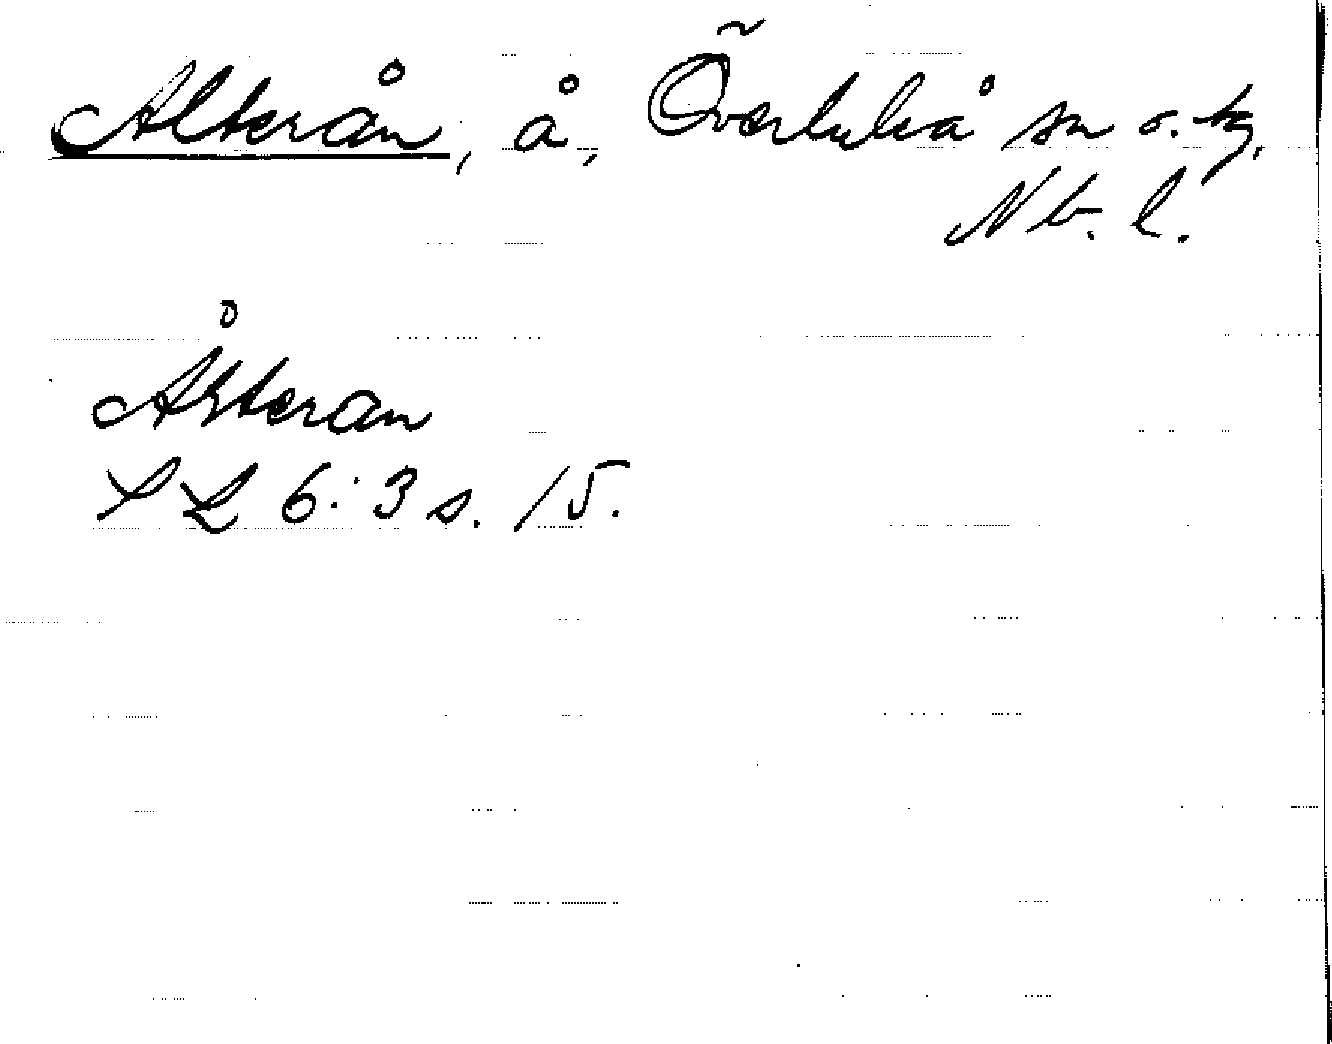 Alterån, å, Överluleå sn o. tg,
Nb. l.
Åsteran
SL 6:3 s. 15.